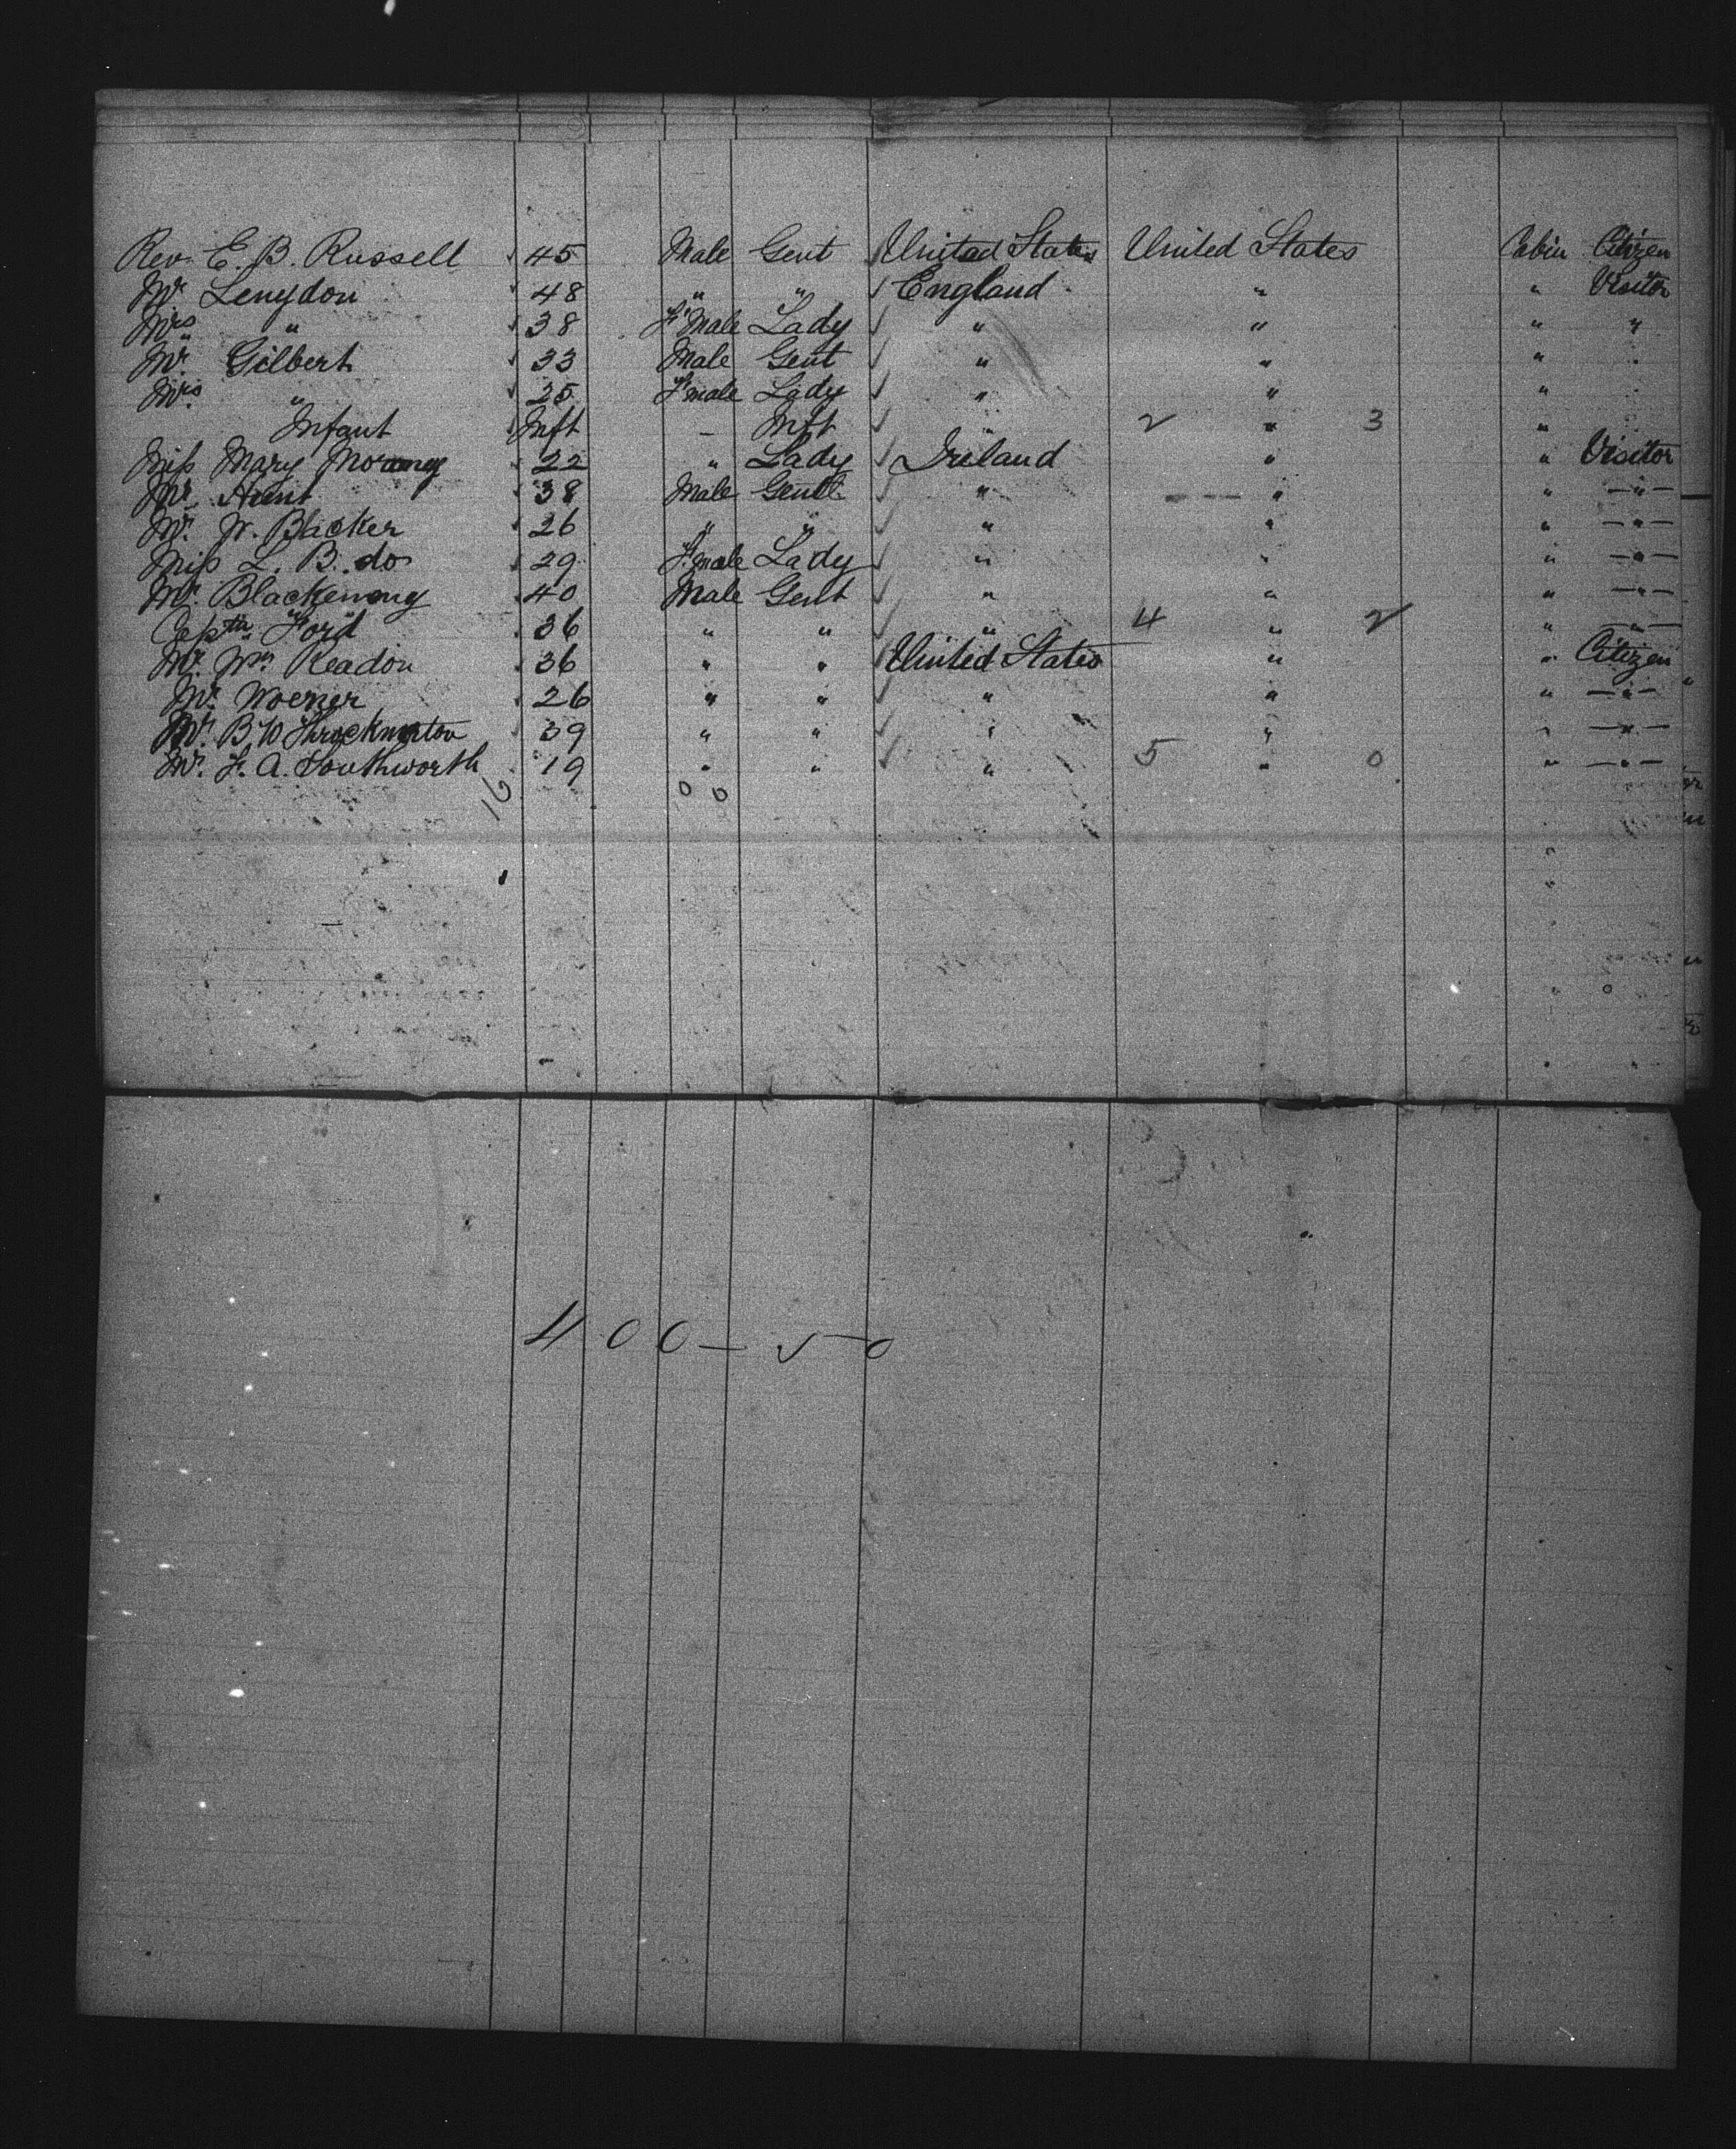 Rev. E. B. Russell 45 Male Gent United States United States Cabin Citizen
Mr Lenydon 48 " " England " " Visitor
Mrs " 38 F'Male Lady " " " "
Mr. Gilbert 33 Male Gent " " "
Mrs. " 25 F'male Lady " " "
Infant Inft - Inft " 2 " 3 "
Miss Mary 22 " Lady Ireland " " Visitor
Mr. Hunt 38 Male Gentl. " " " - " -
Mr. W. Blacker 26 " " " " " - " -
Miss L. B. do 29 F.male Lady " " " - " -
Mr. 40 Male Gent " " " - " -
Ford 36 " " " 4 " 2 " - " -
Mr. Wm Readon 36 " " United States " " Citizen
Mr. Woerner 26 " " " " " - " -
Mr. B W Throckmorton 39 " " " " " - " -
Mr. F. A. Southworth 19 " " " 5 " 0 " - " -
16 0 0
400-50